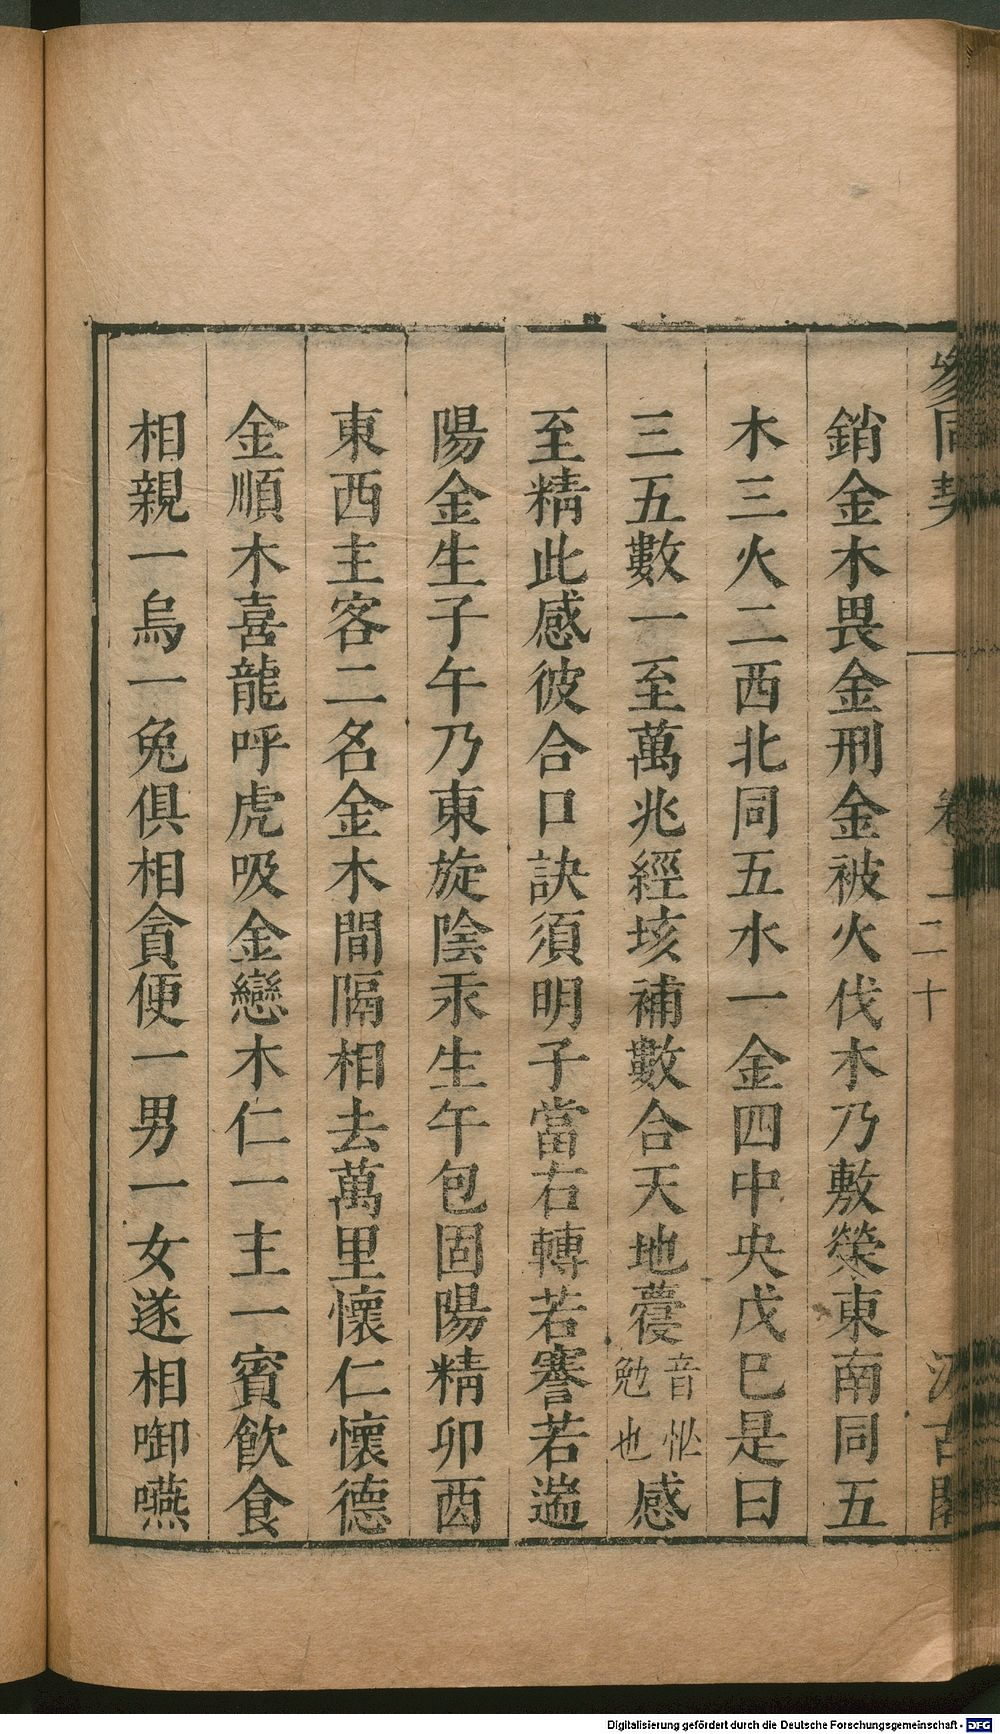 參同契 卷上 二十 汲古閣
銷金木畏金刑金被火伐木乃敷榮東南同五
木三火二西北同五水一金四中央戊巳是曰
三五數一至萬兆經垓補數合天地虁音怭勉也感
至精此感彼合口訣須明子當右轉若謇若遄
陽金生子午乃東旋陰汞生午包固陽精卯酉
東西主客二名金木間隔相去萬里懷仁懷德
金順木喜龍呼虎吸金戀木仁一主一賓飲食
相親一烏一兔俱相貪便一男一女遂相啣嚥
Digitalisierung gefördert durch die Deutsche Forschungsgemeinschaft - DFG